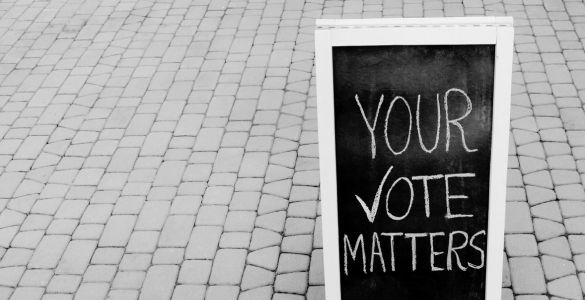 YOUR
VOTE
MATTERS